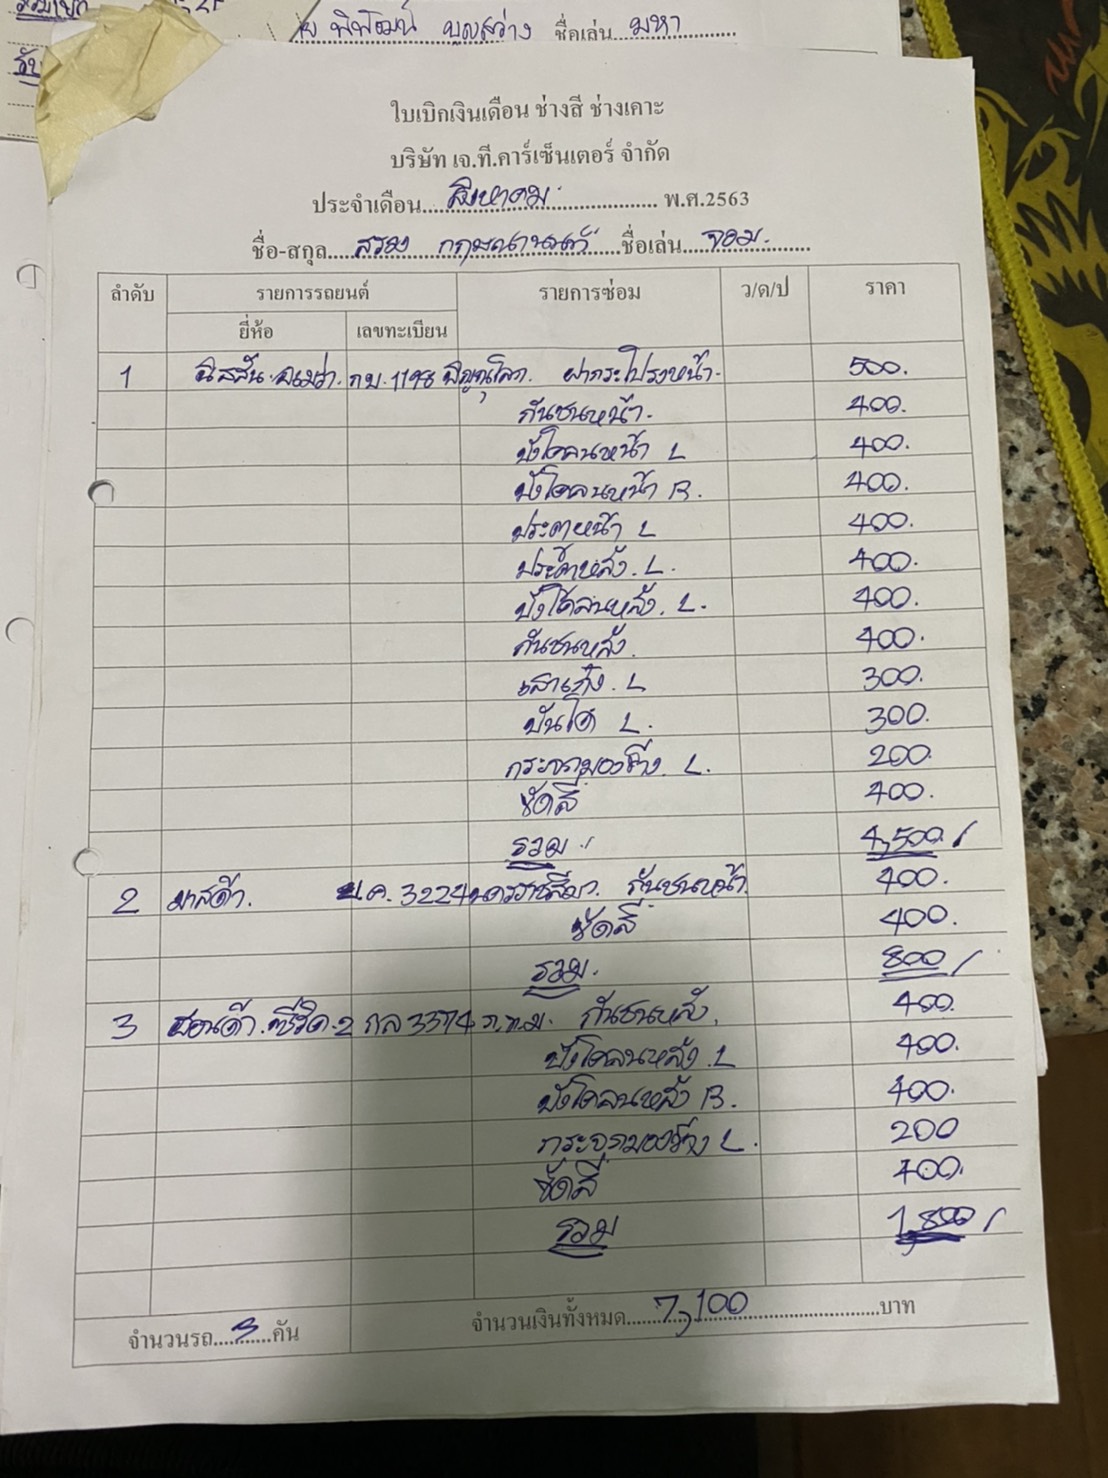 พิพัฒน์ บุญสว่าง ชื่อเล่น มหา
ใบเบิกเงินเดือน ช่างสี ช่างเคาะ
บริษัท เจ.ที.คาร์เซ็นเตอร์ จำกัด
ประจำเดือน สิงหาคม พ.ศ.2563
ชื่อ-สกุล กฤษณานนท์ ชื่อเล่น จอม.
ลำดับ รายการรถยนต์ รายการซ่อม ว/ด/ป ราคา
ยี่ห้อ เลขทะเบียน
1 นิสสัน. อเมร่า. กบ. 1198 พิษณุโลก. ฝากระโปรงหน้า. 500.
กันชนหน้า. 400.
บังโคลนหน้า L 400.
บังโคลนหน้า R. 400.
ประตูหน้า L 400.
ประตูหลัง. L. 400.
บังโคลนหลัง. L. 400.
กันชนหลัง. 400.
เสาเก๋ง. L 300.
บันได L. 300.
กระจกมองข้าง. L. 200.
ขัดสี 400.
รวม. 4,500.
2 มาสด้า. ข.ค. 3224 นครราชสีมา. กันชนหน้า. 400.
ขัดสี 400.
รวม. 800
3 ฮอนด้า. ซีวิค. 2 กล 3374 ก.ท.ม. กันชนหลัง. 400.
บังโคลนหลัง. L 400.
บังโคลนหลัง R. 400.
กระจกมองข้าง L. 200
ขัดสี 400.
รวม 1,800
จำนวนรถ 3 คัน จำนวนเงินทั้งหมด 7,100 บาท